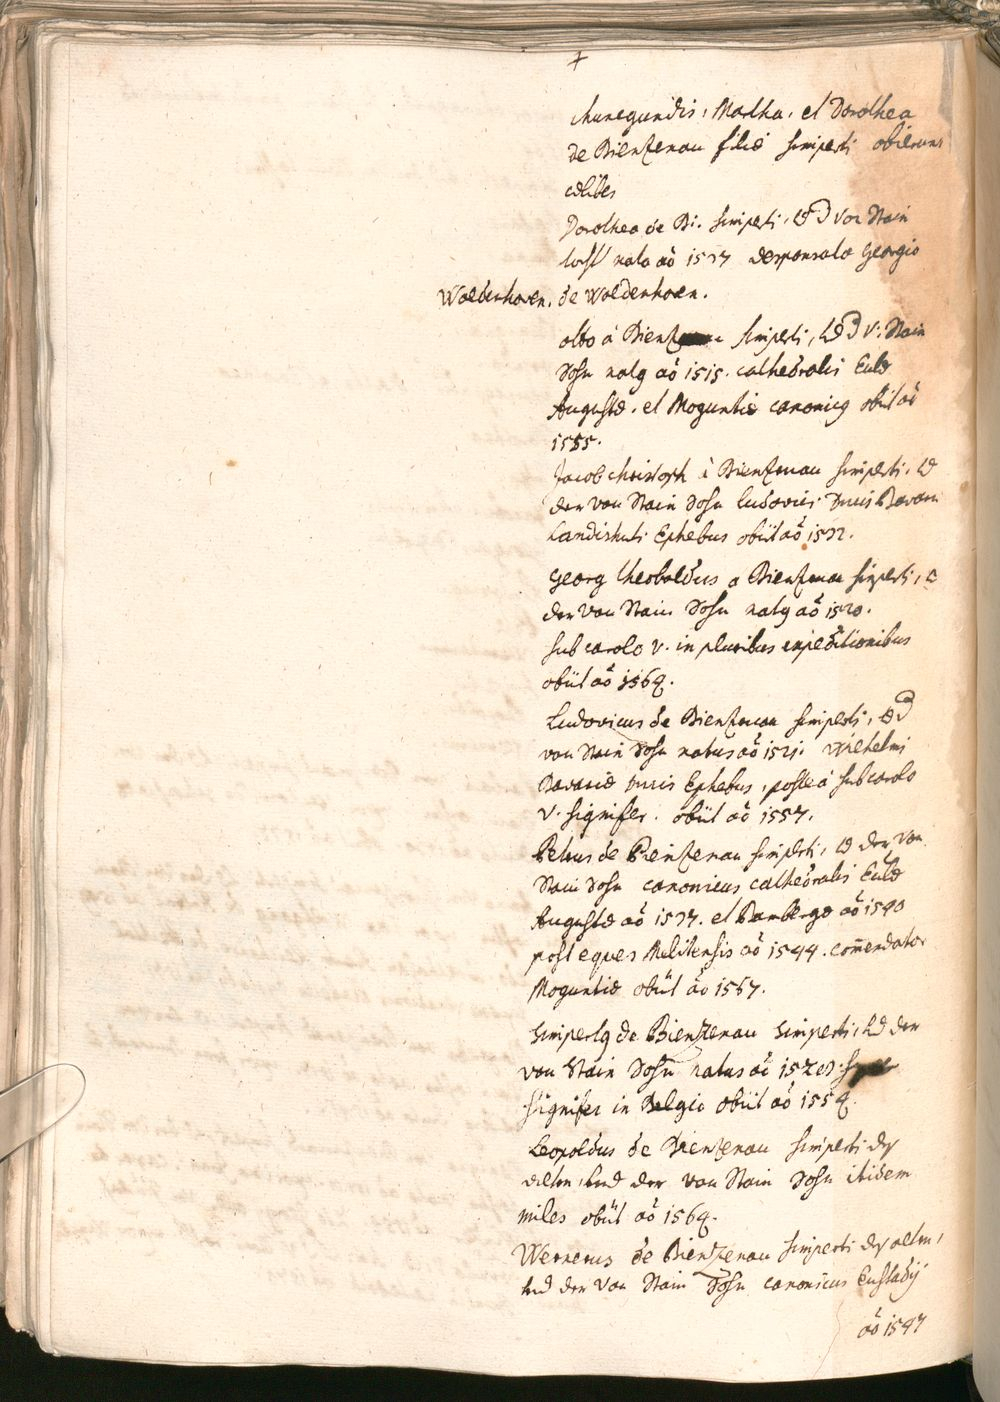 7
chunegundis, Martha, et Dorothea
de Bientzenau filiæ simperti obierunt
cælibes
Dorothea de Bi. simperti, vnd von Stain
tocht nata aõ 1517 desponsata Georgio
Waldenhoven. de Waldenhoen.
otto à Bientzenau simperti, vnd v: Stain
Sohn natq aõ 1515. cathedralis Eccł
Augustæ. et Moguntiæ canonicq obiit aõ
1555.
Jacob christoph à Bientzenau simperti, vnd
der von Stain Sohn ludovici Ducis Bavari
Landishuti Ephebus obiit aõ 1532.
Georg theobaldus a Bientzenau simperti, v
der von Stain Sohn natq aõ 1520.
sub carolo V. in pluribus expeditionibus
obiit aõ 1564.
Ludovicus de Bientzenau simperti, vnd
von Stain Sohn natus aõ 1521. Wilhelmi
Bavariæ Ducis Ephebus, posteà sub carolo
V. signifer. obiit aõ 1557.
Petrus de Bientzenau simperti, vnd der von
Stain Sohn canonicus cathedralis Eccłæ
Augustæ aõ 1537. et Bambergæ aõ 1540
post eques Melitensis aõ 1544. com̃endator
Moguntiæ obiit aõ 1567.
Simpertq de Bientzenau simperti, vnd der
von Stain Sohn natus aõ
signifer in Belgio obiit aõ 1554.
Leopoldus de Bientzenau simperti deß
alten, vnd der von Stain Sohn itidem
miles obiit aõ 1564.
Wernerus de Bientzenau simperti deß alten,
vnd der von Stain Sohn canonicus Eustadij
aõ 1547